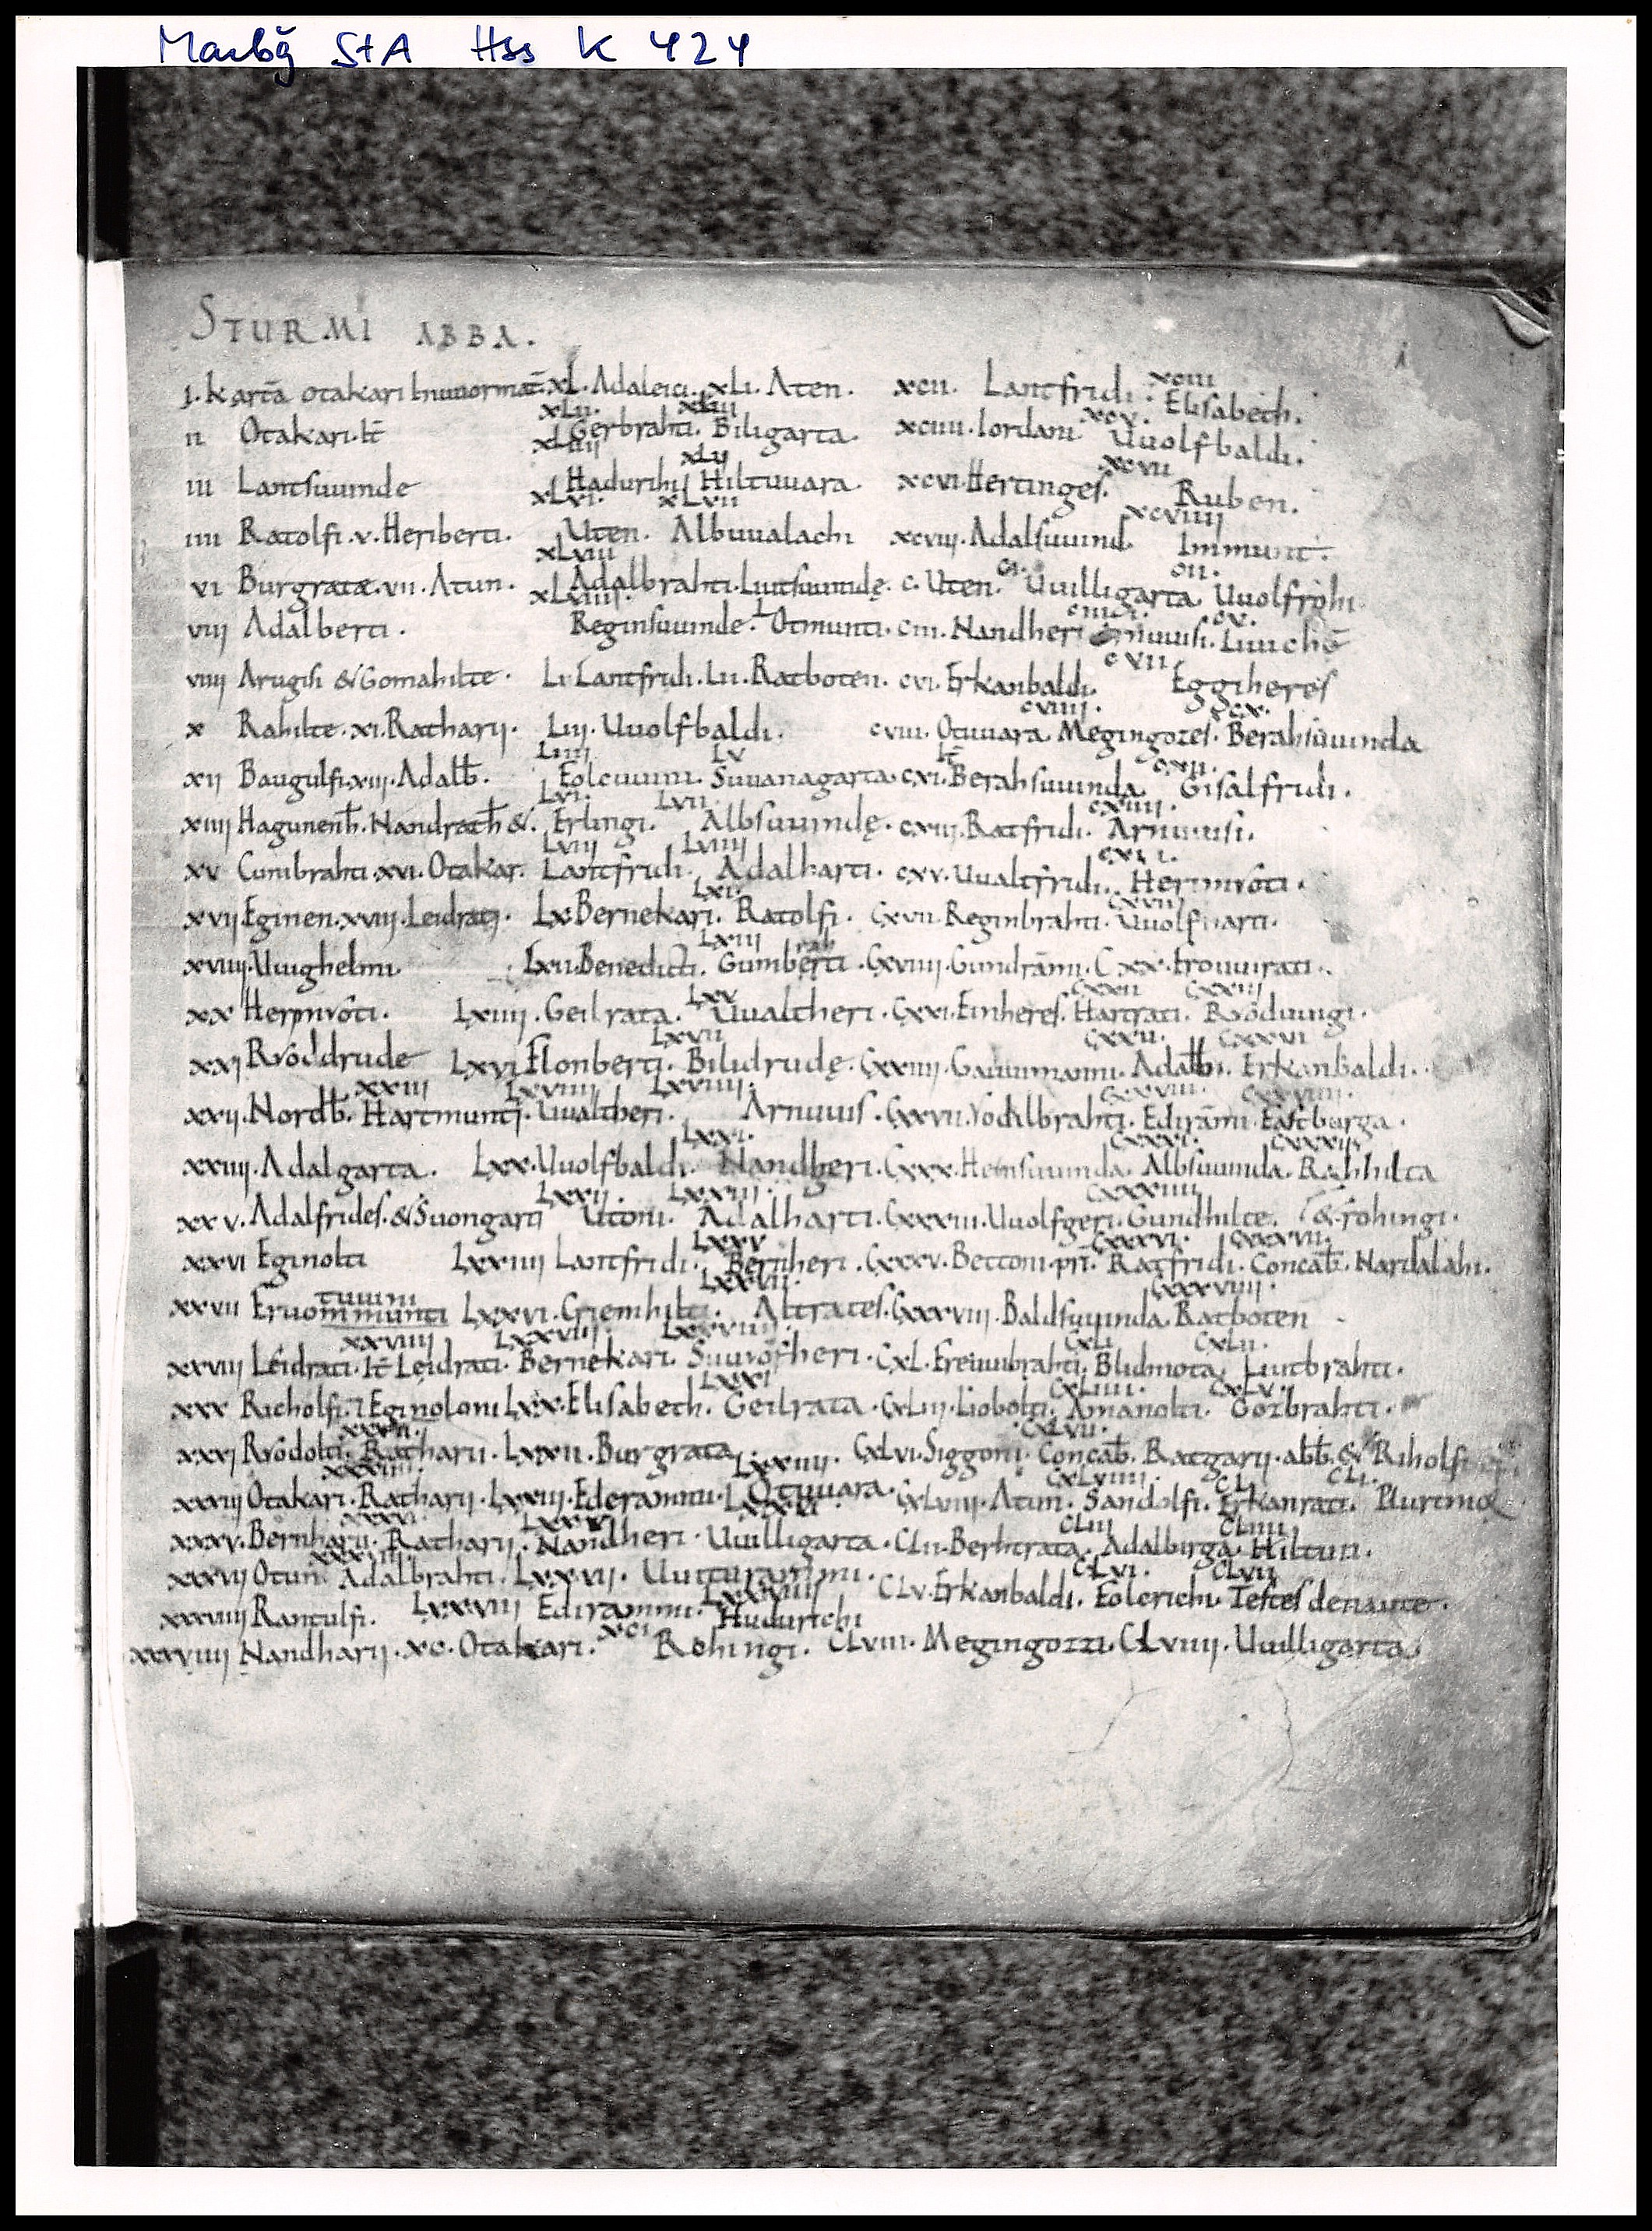 Marbg StA Hss K 424
STURMI ABBA.
I. Kartā Otakari XL. Adaleici. XLI. Aten. XCII. Lantfridi. XCIII Elisabeth.
II Otakari. It̄ XLII. Gerbrahti. XLIII Biligarta. XCIIII. Iordani. XCV. Uuolfbaldi.
III Lantsuuinde XLIIII Hadurihi XLV Hiltuuara. XCVI. Hertinges. XCVII Ruben.
IIII Ratolfi. V. Heriberti. XLVI. Uten. XLVII Albuualachi XCVIII. Adalsuuind. XCVIIII Immunt.
VI Burgratæ. VII. Atun. XLVIII Adalbrahti. Liutsuuindę. C. Uten. CI. Uuilligarta. CII. Uuolfrohi
VIII Adalberti. XLVIIII. Reginsuuinde. L Otmunti. CIII. Nandheri CIIII. CV. Liuchē
VIIII Arugisi & Gomahilte. LI. Lantfridi. LII. Ratboten. CVI. Erkanbaldi. CVII Eggiheres
X Rahilte. XI. Ratharij. LIII. Uuolfbaldi. CVIII. Otuuara. CVIIII. Megingozes. CX. Berahsuuinda
XII Baugulfi. XIII. Adalƀ. LIIII Eolcuuini. LV Suuanagarta. CXI. It̄ Berahsuuinda CXII. Gisalfridi.
XIIII Haguneƀ. Nandraƀ &. LVI. Erlingi. LVII. Albsuuindę. CXIII. Ratfridi. CXIIII. Arnuuisi.
XV Cunibrahti. XVI. Otakar. LVIII Lantfridi. LVIIII Adalharti. CXV. Uualtfridi. CXVI. Herimoti.
XVII Eginen. XVIII. Leidrati. LX Bernekari. LXI. Ratolfi. CXVII. Reginbrahti. CXVIII Uuolfharti.
XVIIII. Uuighelmi. LXII. Benedicti. LXIII Gumberti. CXVIIII. Gundrāmi. CXX. Trouuirati.
XX Herimoti. LXIIII. Geilrata. LXV Uualtheri. CXXI. Einheres. CXXII Hartrati. CXXIII Ruodungi.
XXI Ruoddrude LXVI Elonberti. LXVII Biliidrudę. CXXIIII. Gauuimanni. CXXV. Adalƀi. CXXVI Erkanbaldi.
XXII. Nordƀ. XXIII Hartmunti. LXVIII Uualtheri. LXVIIII. Arnuuis. CXXVII. Vodalbrahti. CXXVIII. Edirāmi. CXXVIIII. Eastburga.
XXIIII. Adalgarta. LXX. Uuolfbaldi. LXXI. Nandheri. CXXX. Heinsuuinda. CXXXI. Albsuuinda. CXXXII. Rahhilta
XXV. Adalfrides. & Suongarti LXXII. Utoni. LXXIII. Adalharti. CXXXIII. Uuolfgeri. CXXXIIII Gundhilte. & rohingi.
XXVI Eginolti LXXIIII Lantfridi. LXXV Bernheri. CXXXV. Bettoni. pri. CXXXVI. Ratfridi. CXXXVII. Concaƀ. Nardalahi.
XXVII LXXVI. Criemhilti. LXXVII. Altrates. CXXXVIII. Baldsuuinda. CXXXVIIII. Ratboten
XXVIII Leidrati. XXVIIII It̄ Leidrati. LXXVIII. Bernekari. LXXVIIII. CXL. Freuuibrahti. CXLI Blidmota. CXLII. Liutbrahti.
XXX Richolfi. 7 Eginoloni LXXX. Elisabeth. LXXXI Geilrata. CXLIII. Liobolti. CXLIIII. Amanolti. CXLV. Gozbrahti.
XXXI Ruodolti. XXXII. Ratharii. LXXXII. Burgrata CXLVI. Siggoni. CXLVII. Concaƀ. Ratgarij. abƀ. & Riholfi
XXXIII Otakari. XXXIIII. Ratharij. LXXXIII. Ederammi. LXXXIIII. Otuuara. CXLVIII. Atun. CXLVIIII. Sandolfi. CL. Erkanrati. CLI. Plurimo
XXXV. Bernharii. XXXVI. Ratharij. LXXXV Nandheri. Uuilligarta. CLII. Berhtrata. CLIII Adalbirga. CLIIII Hiltun.
XXXVII Otun. XXXVIII Adalbrahti. LXXXVII. CLV. Erkanbaldi. CLVI. Eolerichi. CLVII Testes denante.
XXXVIIII Rantulfi. LXXXVIII Edirammi. LXXXVIIII Hudurichi
Nandharij. XC. Otakari. XCI. Rohingi. CLVIII. Megingozzi. CLVIIII. Uuilligarta.